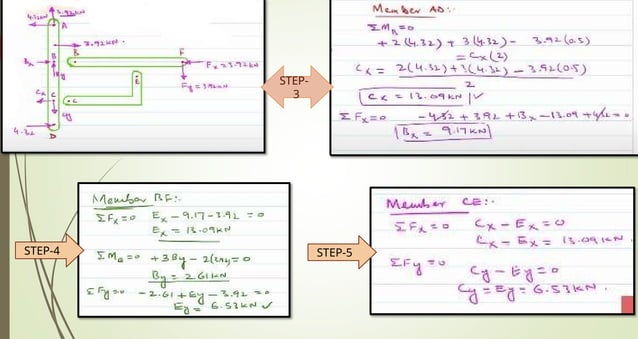 4.32kN 3.92kN
A
3.92kN.
B B F
Bx By Fx=3.92kN
E Fy=3.92kN
Cx C C
Cy
4.32 D
STEP-
3
Member AD:-
ΣMB=0
+2(4.32) + 3(4.32) - 3.92(0.5)
= Cx(2)
Cx = 2(4.32)+3(4.32) - 3.92(0.5)
2
Cx = 13.09kN
ΣFx=0 -4.32 + 3.92 + Bx -13.09 +4.32 = 0
Bx = 9.17kN
STEP-4
Member BF:-
ΣFx=0 Ex - 9.17-3.92 =0
Ex = 13.09kN
=0 +3By - 2(3.92)=0
By = 2.61kN
ΣFy=0 -2.61+Ey -3.92 =0
Ey= 6.53kN ✓
STEP-5
Member CE:-
ΣFx=0 Cx - Ex = 0
Cx - Ex = 13.09kN.
ΣFy=0 Cy - Ey=0
Cy=Ey= 6.53kN.